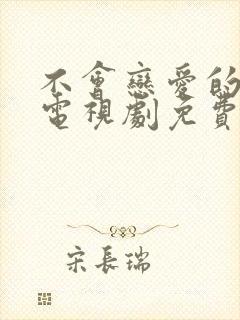 不會戀愛的
電視劇免費
宋長瑞